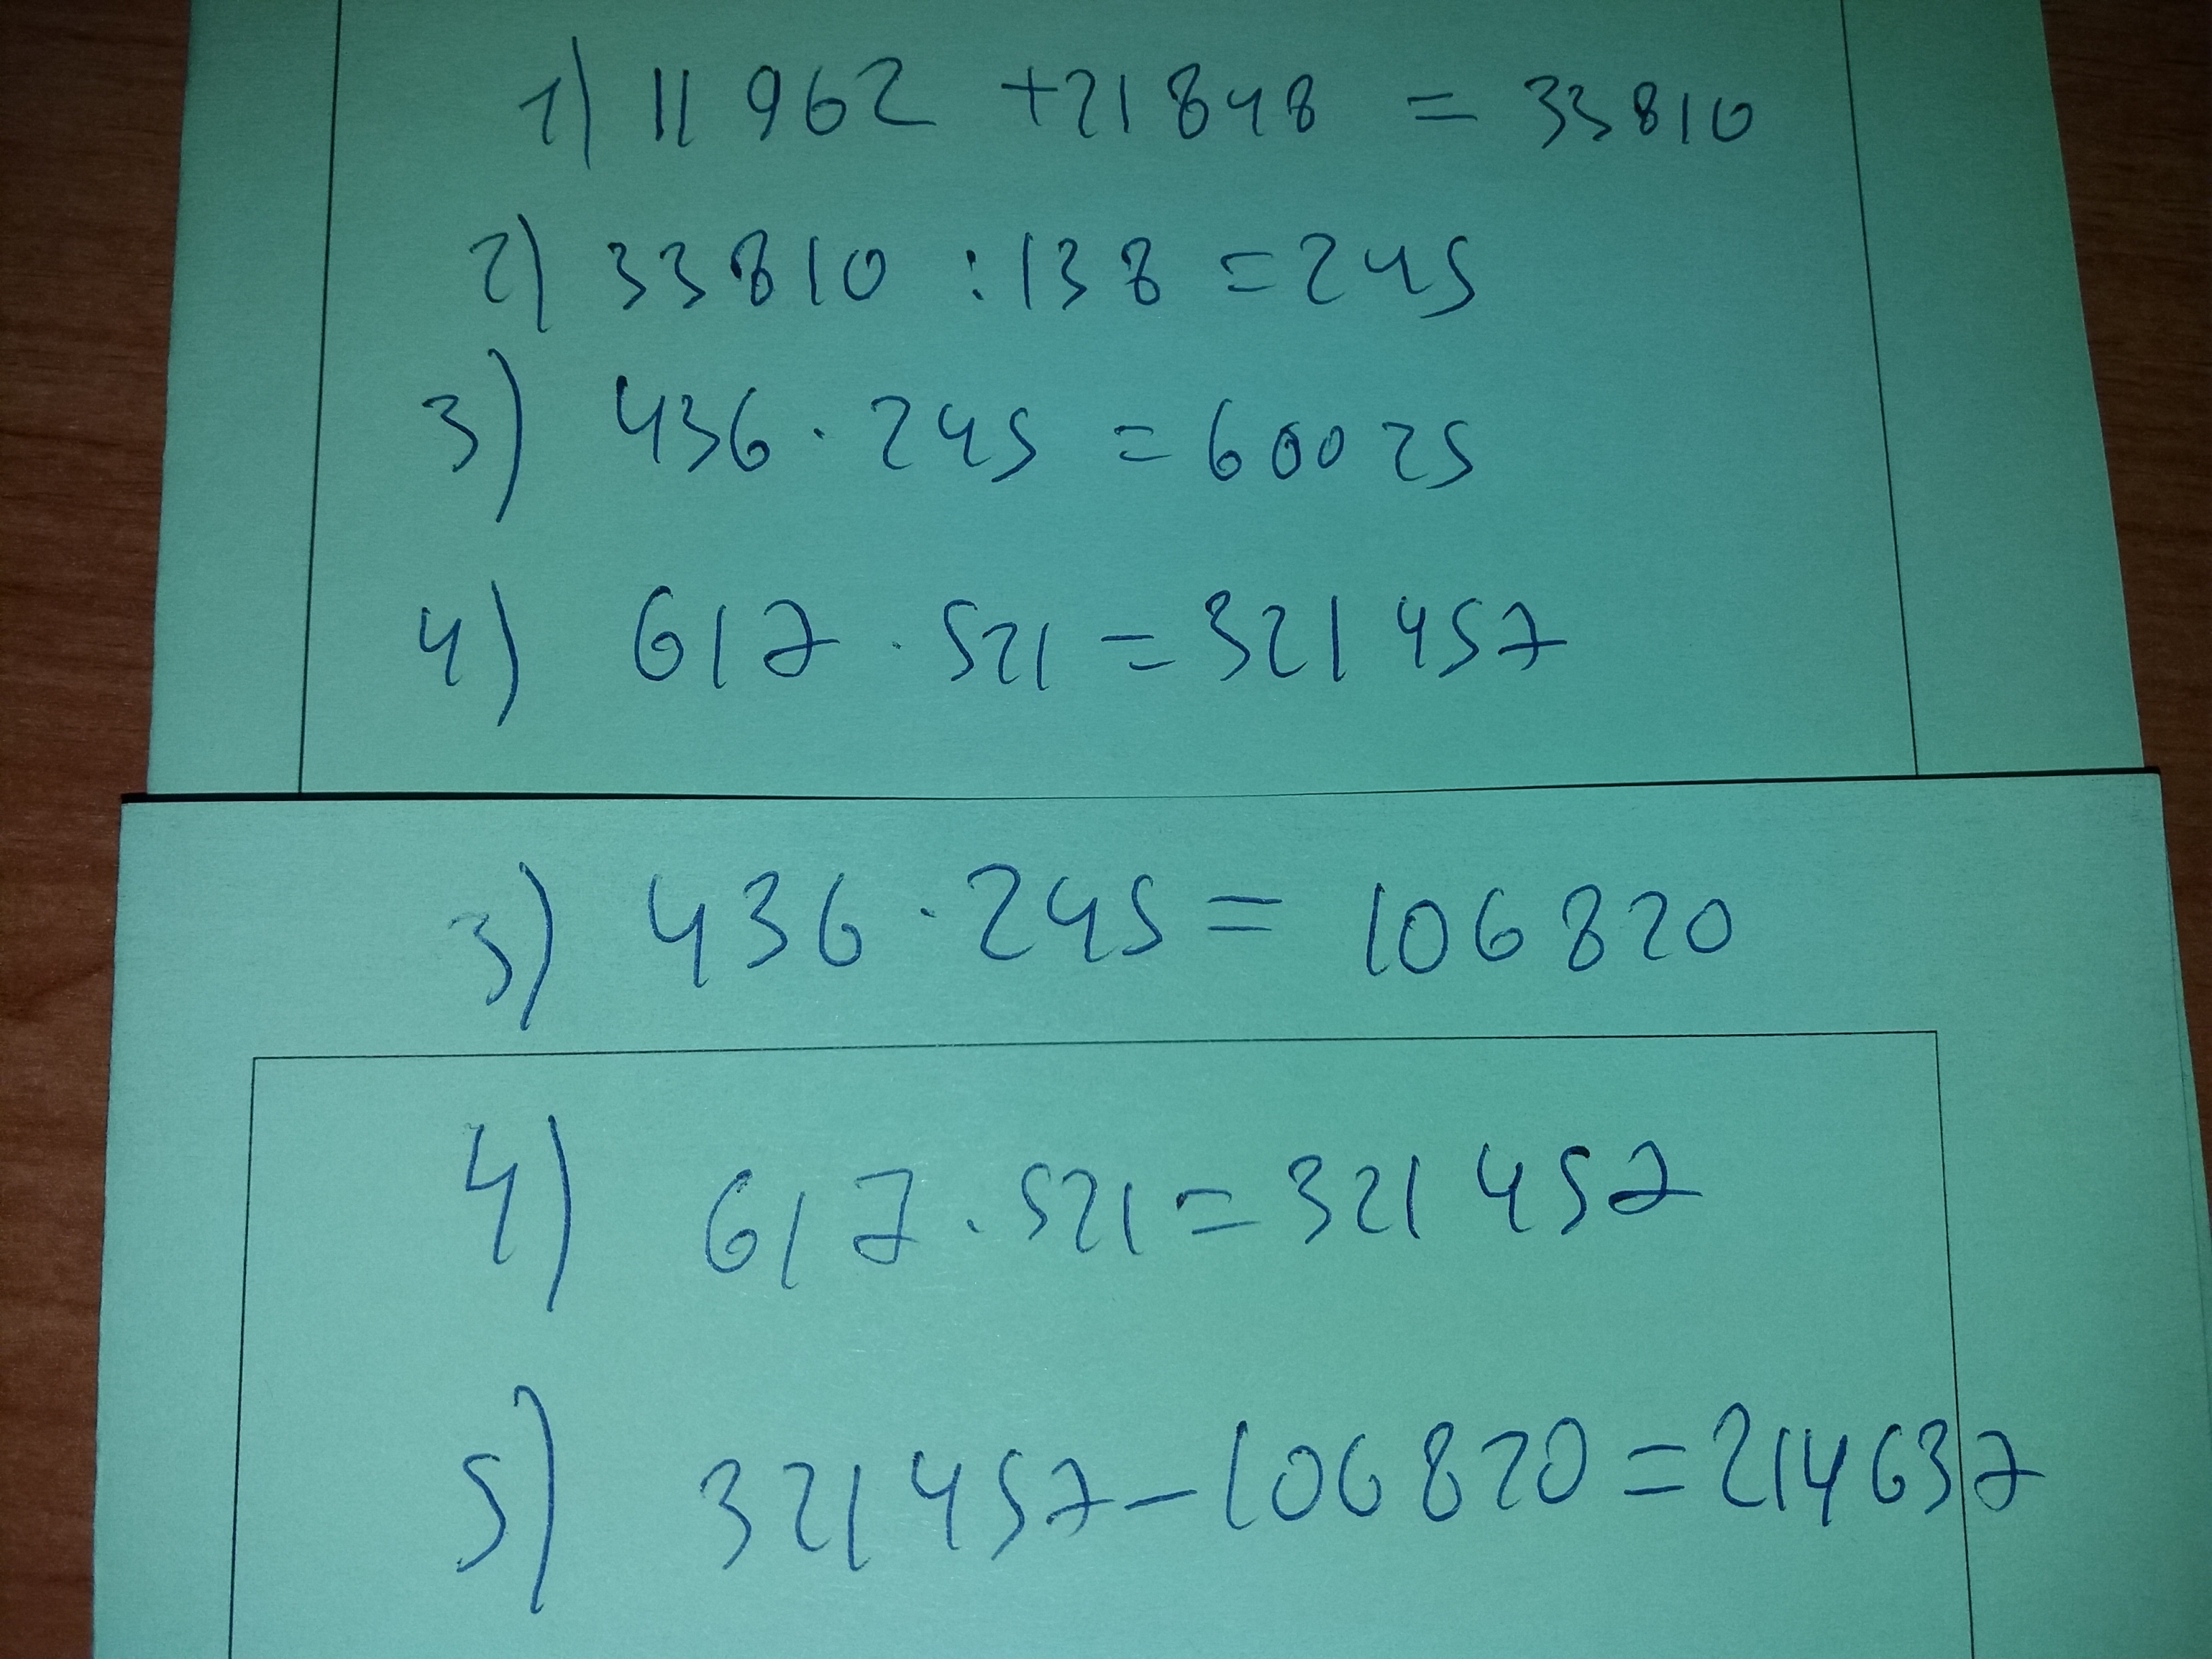 1) 11 962 + 21 848 = 33810
2) 33810 : 138 = 245
3) 436 · 245 = 60025
4) 617 · 521 = 321 457
3) 436 · 245 = 106 820
4) 617 · 521 = 321 457
5) 321 457 - 106 820 = 214637